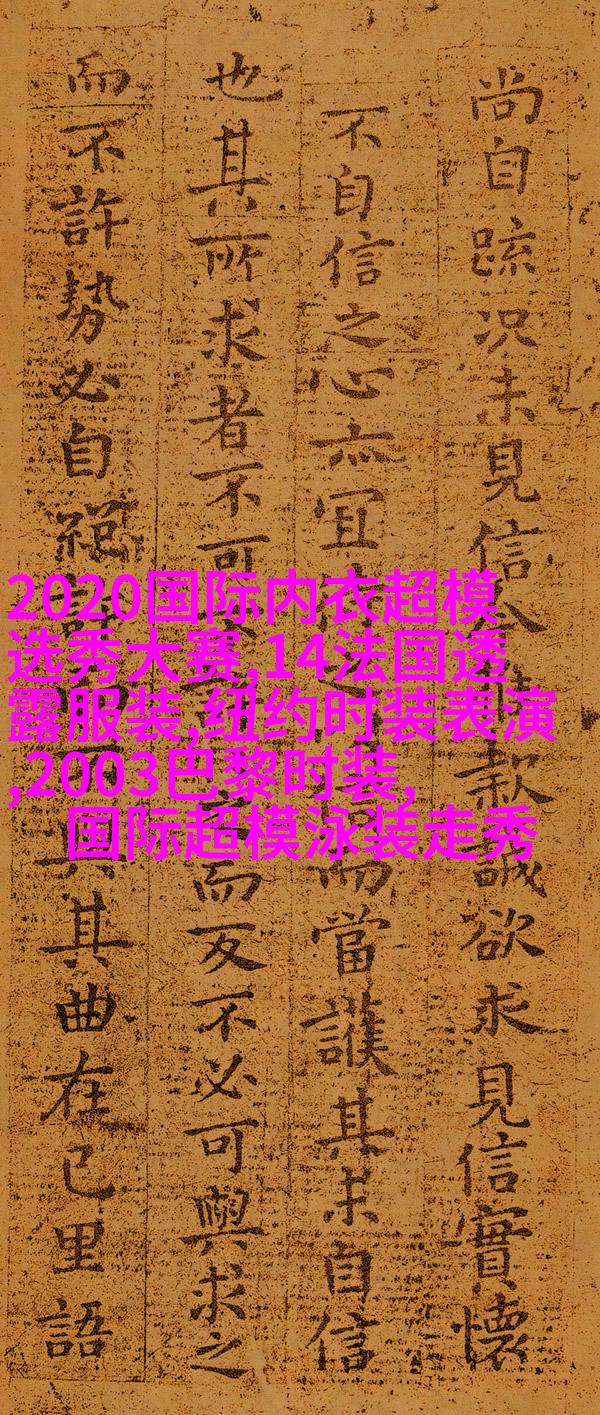 尚自踈況未見信今款誠欲求見信實懷
不自信之心亦宜信而當護其未自信
也其所求者不可而反不必可與求之
而不許勢必自絕許其曲在己里語
2020国际内衣超模
选秀大赛,14法国透
露服装,纽约时装表演
,2003巴黎时装,
国际超模泳装走秀